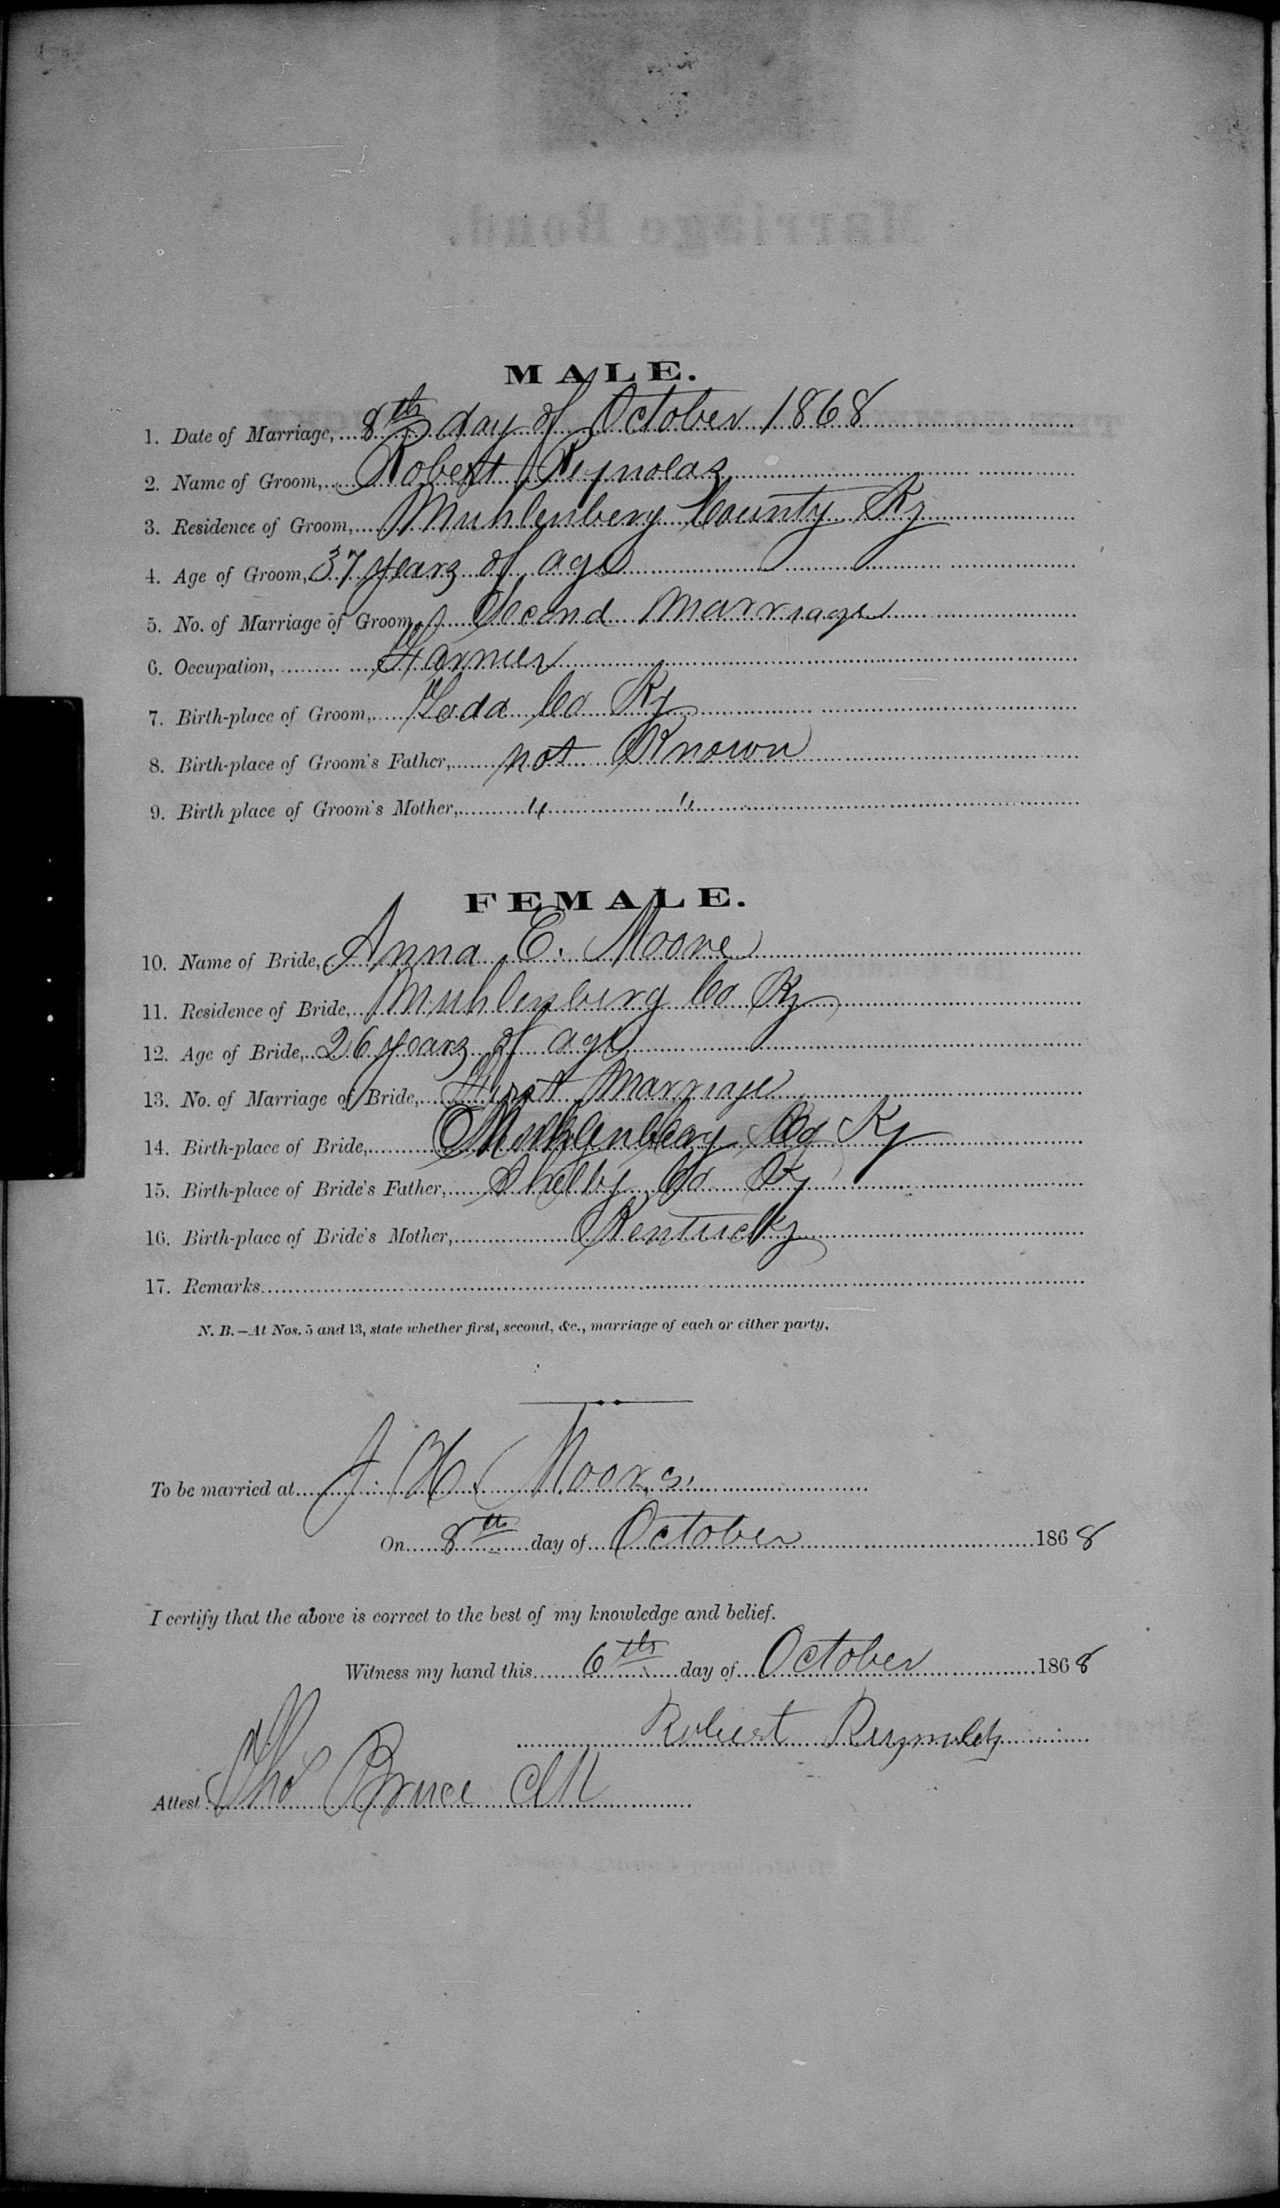 MALE.
1. Date of Marriage, 8th day of October 1868
2. Name of Groom, Robert Reynolds
3. Residence of Groom, Muhlenberg County Ky
4. Age of Groom, 37 years of age
5. No. of Marriage of Groom, Second Marriage
6. Occupation, Farmer
7. Birth-place of Groom, Todd Co Ky
8. Birth-place of Groom's Father, not Known
9. Birth place of Groom's Mother, " "
FEMALE.
10. Name of Bride, Anna E. Moore
11. Residence of Bride, Muhlenberg Co Ky
12. Age of Bride, 26 years of age
13. No. of Marriage of Bride, First Marriage
14. Birth-place of Bride, Muhlenberg Co Ky
15. Birth-place of Bride's Father, Shelby Co Ky
16. Birth-place of Bride's Mother, Kentucky
17. Remarks
N. B.—At Nos. 5 and 13, state whether first, second, &c., marriage of each or either party.
To be married at J. H. Moores
On 8th day of October 1868
I certify that the above is correct to the best of my knowledge and belief.
Witness my hand this 6th day of October 1868
Robert Reynolds
Attest Tho Bruce Clk